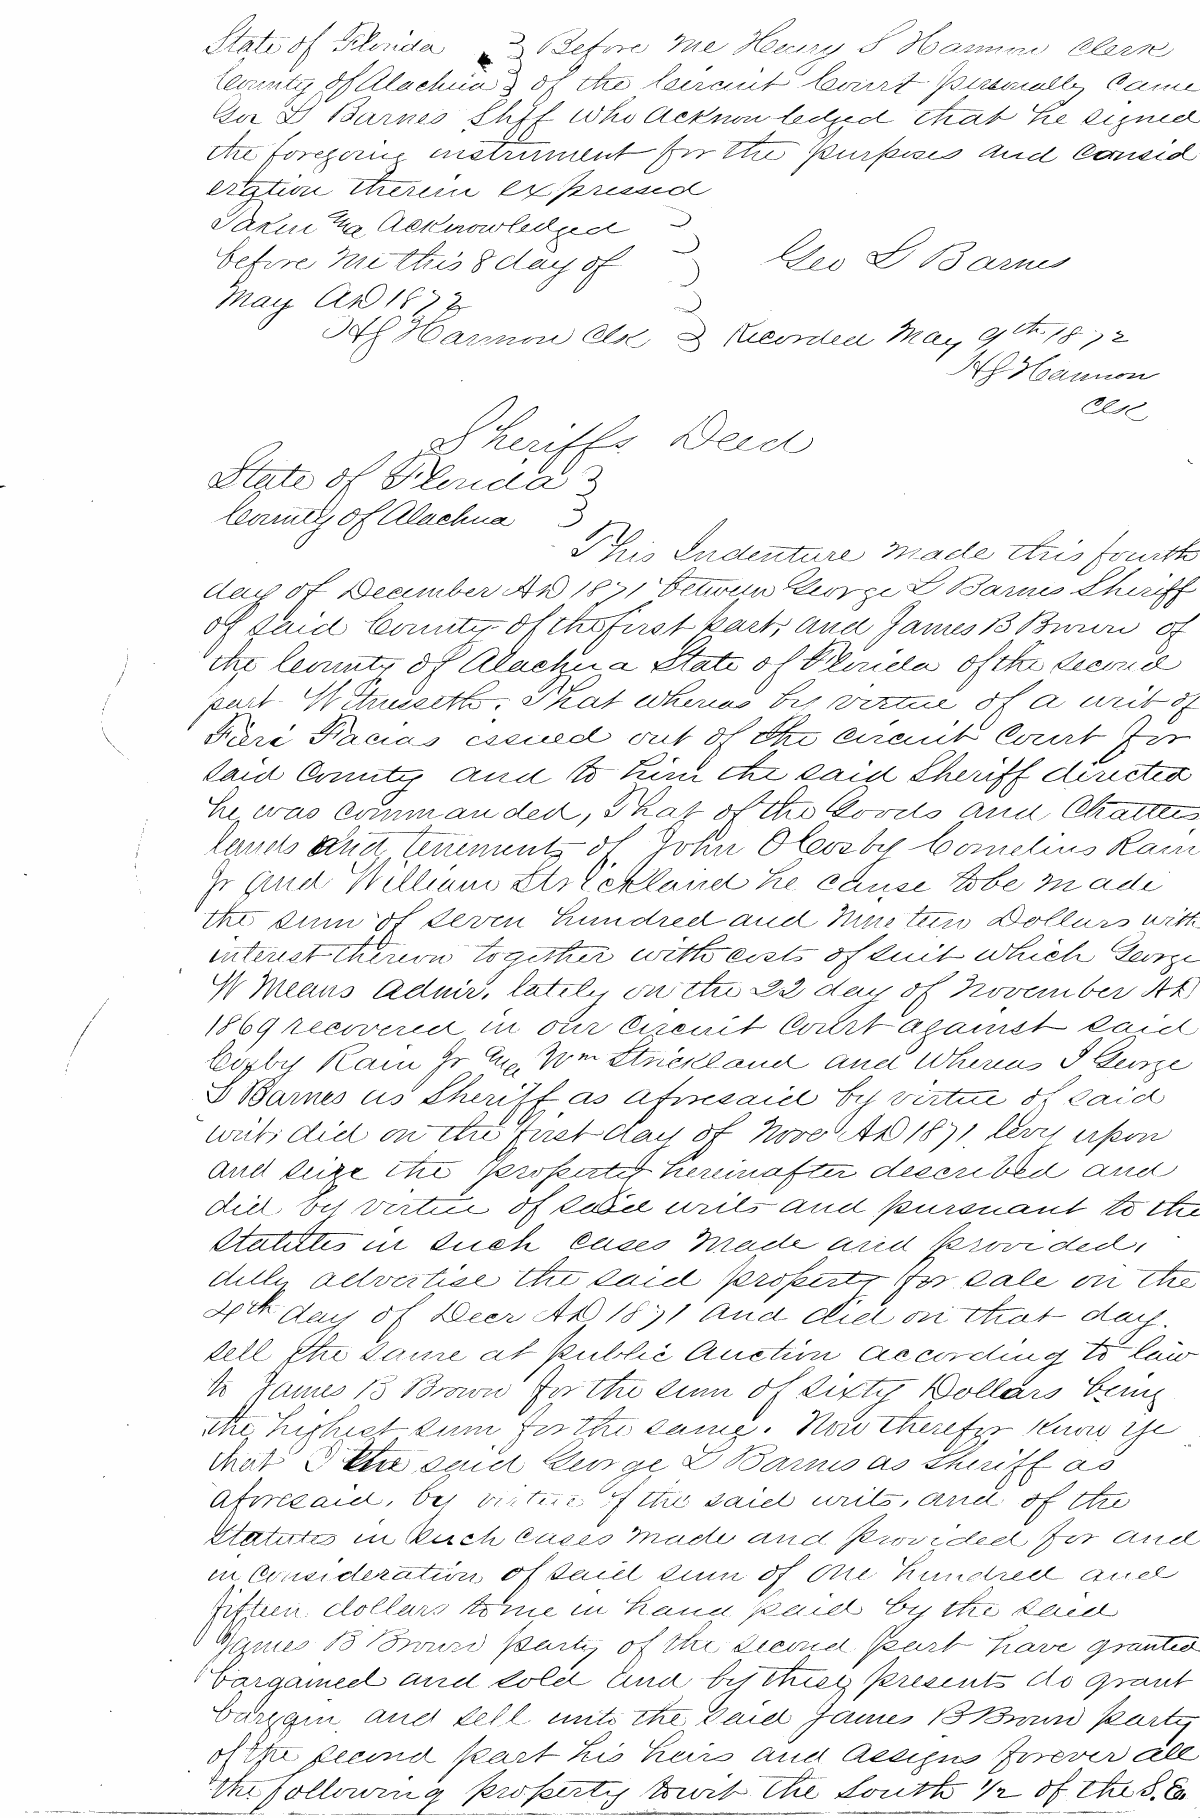 State of Florida } Before me Henry S Harmon Clerk
County of Alachua } of the Circuit Court personally came
Geo L Barnes Shff who acknowledged that he signed
the foregoing instrument for the purposes and consid
eration therein expressed
Taken and Acknowledged }
before me this 8 day of } Geo L Barnes
May AD 1872 }
HS Harmon Clk } Recorded May 9th 1872
HS Harmon
Clk
Sheriffs Deed
State of Florida }
County of Alachua }
This Indenture made this fourth
day of December AD 1871 between George L Barnes Sheriff
of said County of the first part, and James B Brown of
the County of Alachua State of Florida of the second
part Witnesseth. That whereas by virtue of a writ of
Fieri Facias issued out of the circuit Court for
said County and to him the said Sheriff directed
he was commanded, That of the Goods and Chattles
lands and tenements of John O Cosby Cornelius Rain
Jr and William Strickland he cause tobe made
the sum of seven hundred and nineteen Dollars with
interest thereon together with costs of suit which George
W Means Admr. lately on the 22 day of November AD
1869 recovered in our Circuit Court against said
Cosby Rain Jr and Wm Strickland and Whereas I George
L Barnes as Sheriff as aforesaid by virtue of said
writs did on the first day of Novr AD 1871 levy upon
and seize the property hereinafter described and
did by virtue of said writs and pursuant to the
Statutes in such cases made and provided,
dully advertise the said property for sale on the
4th day of Decr AD 1871 and did on that day.
sell the same at public Auction according to law
to James B Brown for the sum of sixty Dollars being
the highest sum for the same. Now therefor know ye
that I the said George L Barnes as Sheriff as
aforesaid, by virtue of the said writs, and of the
Statutes in such cases made and provided for and
in consideration of said sum of one hundred and
fifteen dollars to me in hand paid by the said
James B Brown party of the second part have granted
bargained and sold and by these presents do grant
bargain and sell unto the said James B Brown party
of the second part his heirs and assigns forever all
the following property towit the South 1/2 of the S. Ea